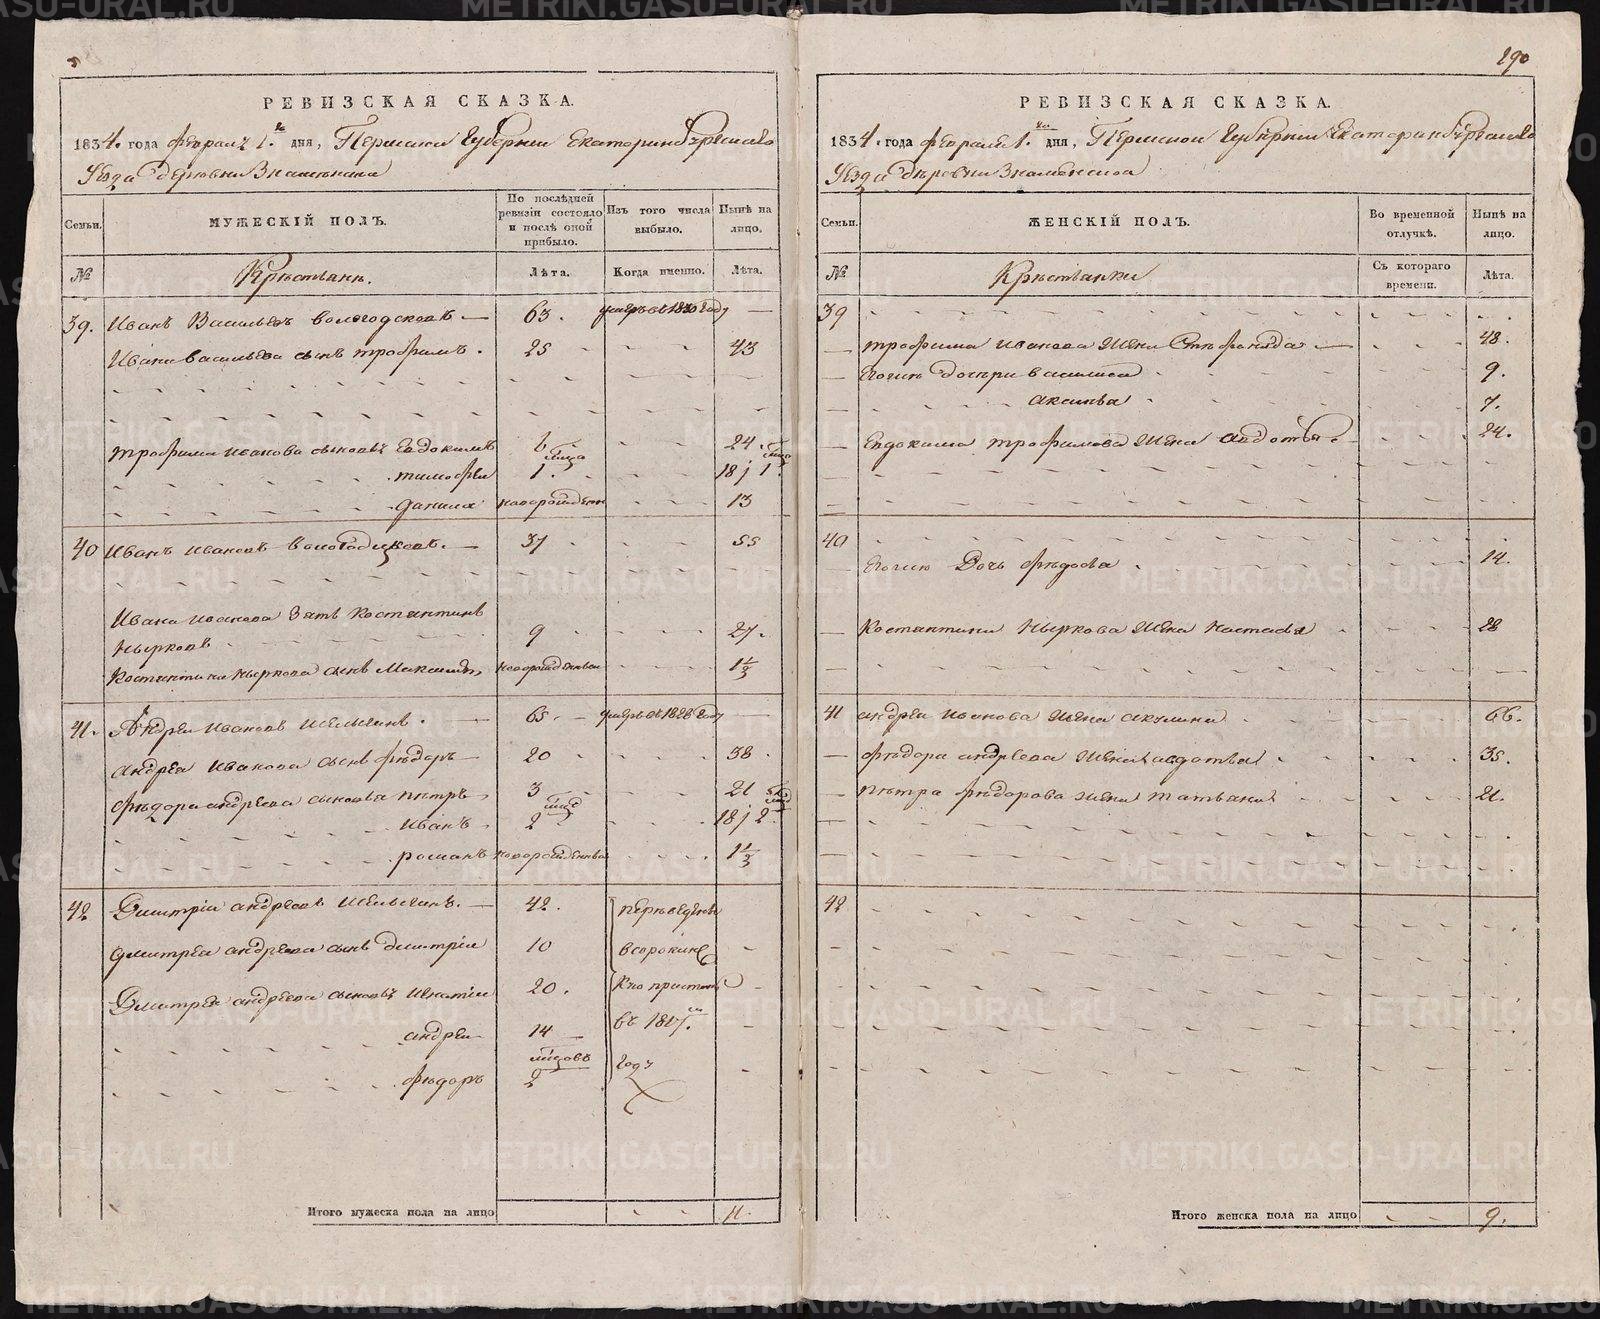 290
РЕВИЗСКАЯ СКАЗКА.
1834. года февраля 1.го дня, Пермской Губернии Екатеринбургскаго
Уезда деревни Знаменской
Семьи.
МУЖЕСКІЙ ПОЛЪ.
По послѣдней ревизіи состояло и послѣ оной прибыло.
Изъ того числа выбыло.
Нынѣ на лицо.
№
Крестьяне.
Лѣта.
Когда именно.
Лѣта.
39. Иванъ Васильевъ Вологодсковъ 63. умеръ въ 1820 году
Ивана Васильева сынъ Трофимъ. 25 43
Трофима Иванова сыновья Евдокимъ 6 24.
Тимофеи 1. 18 1
Данила новорожденъ 13
40 Иванъ Ивановъ Вологодсковъ. 37 55
Ивана Иванова зять Костентинъ
Нырковъ 9 27.
Костентина Ныркова сынъ Максимъ новорожденныи 1 1/2
41. Андреи Ивановъ 65. умеръ въ 1826 году
Андрея Иванова сынъ Федоръ 20 38
Федора Андреева сыновья Петръ 3 21
Иванъ 2 18 2
Романъ новорожденныи 1 1/2
42 Дмитріи Андреевъ 42. переведены
Дмитрея Андреева сынъ Дмитріи 10 в сорокин
Дмитрея Андреева сыновья Игнатіи 20. к
Андреи 14 въ 1817.м
Федоръ 2 году
Итого мужеска пола на лицо 11.
РЕВИЗСКАЯ СКАЗКА.
1834. года февраля 1.го дня, Пермской Губернии Екатеринбургскаго
Уезда деревни Знаменской
Семьи.
ЖЕНСКІЙ ПОЛЪ.
Во временной отлучкѣ.
Нынѣ на лицо.
№
Крестьянки
Съ котораго времени.
Лѣта.
39
Трофима Иванова жена Стефанида 48.
Егоже дочери Василиса 9.
Аксинья 7.
Евдокима Трофимова жена Авдотья 24.
40
Егоже дочь Федосья 14.
Костентина Ныркова жена Настасья 28
41 Андрея Иванова жена Акулина 66.
Федора Андреева жена Авдотья 35.
Петра Федорова жена Татьяна 21.
42
Итого женска пола на лицо 9.
METRIKI.GASO-URAL.RU